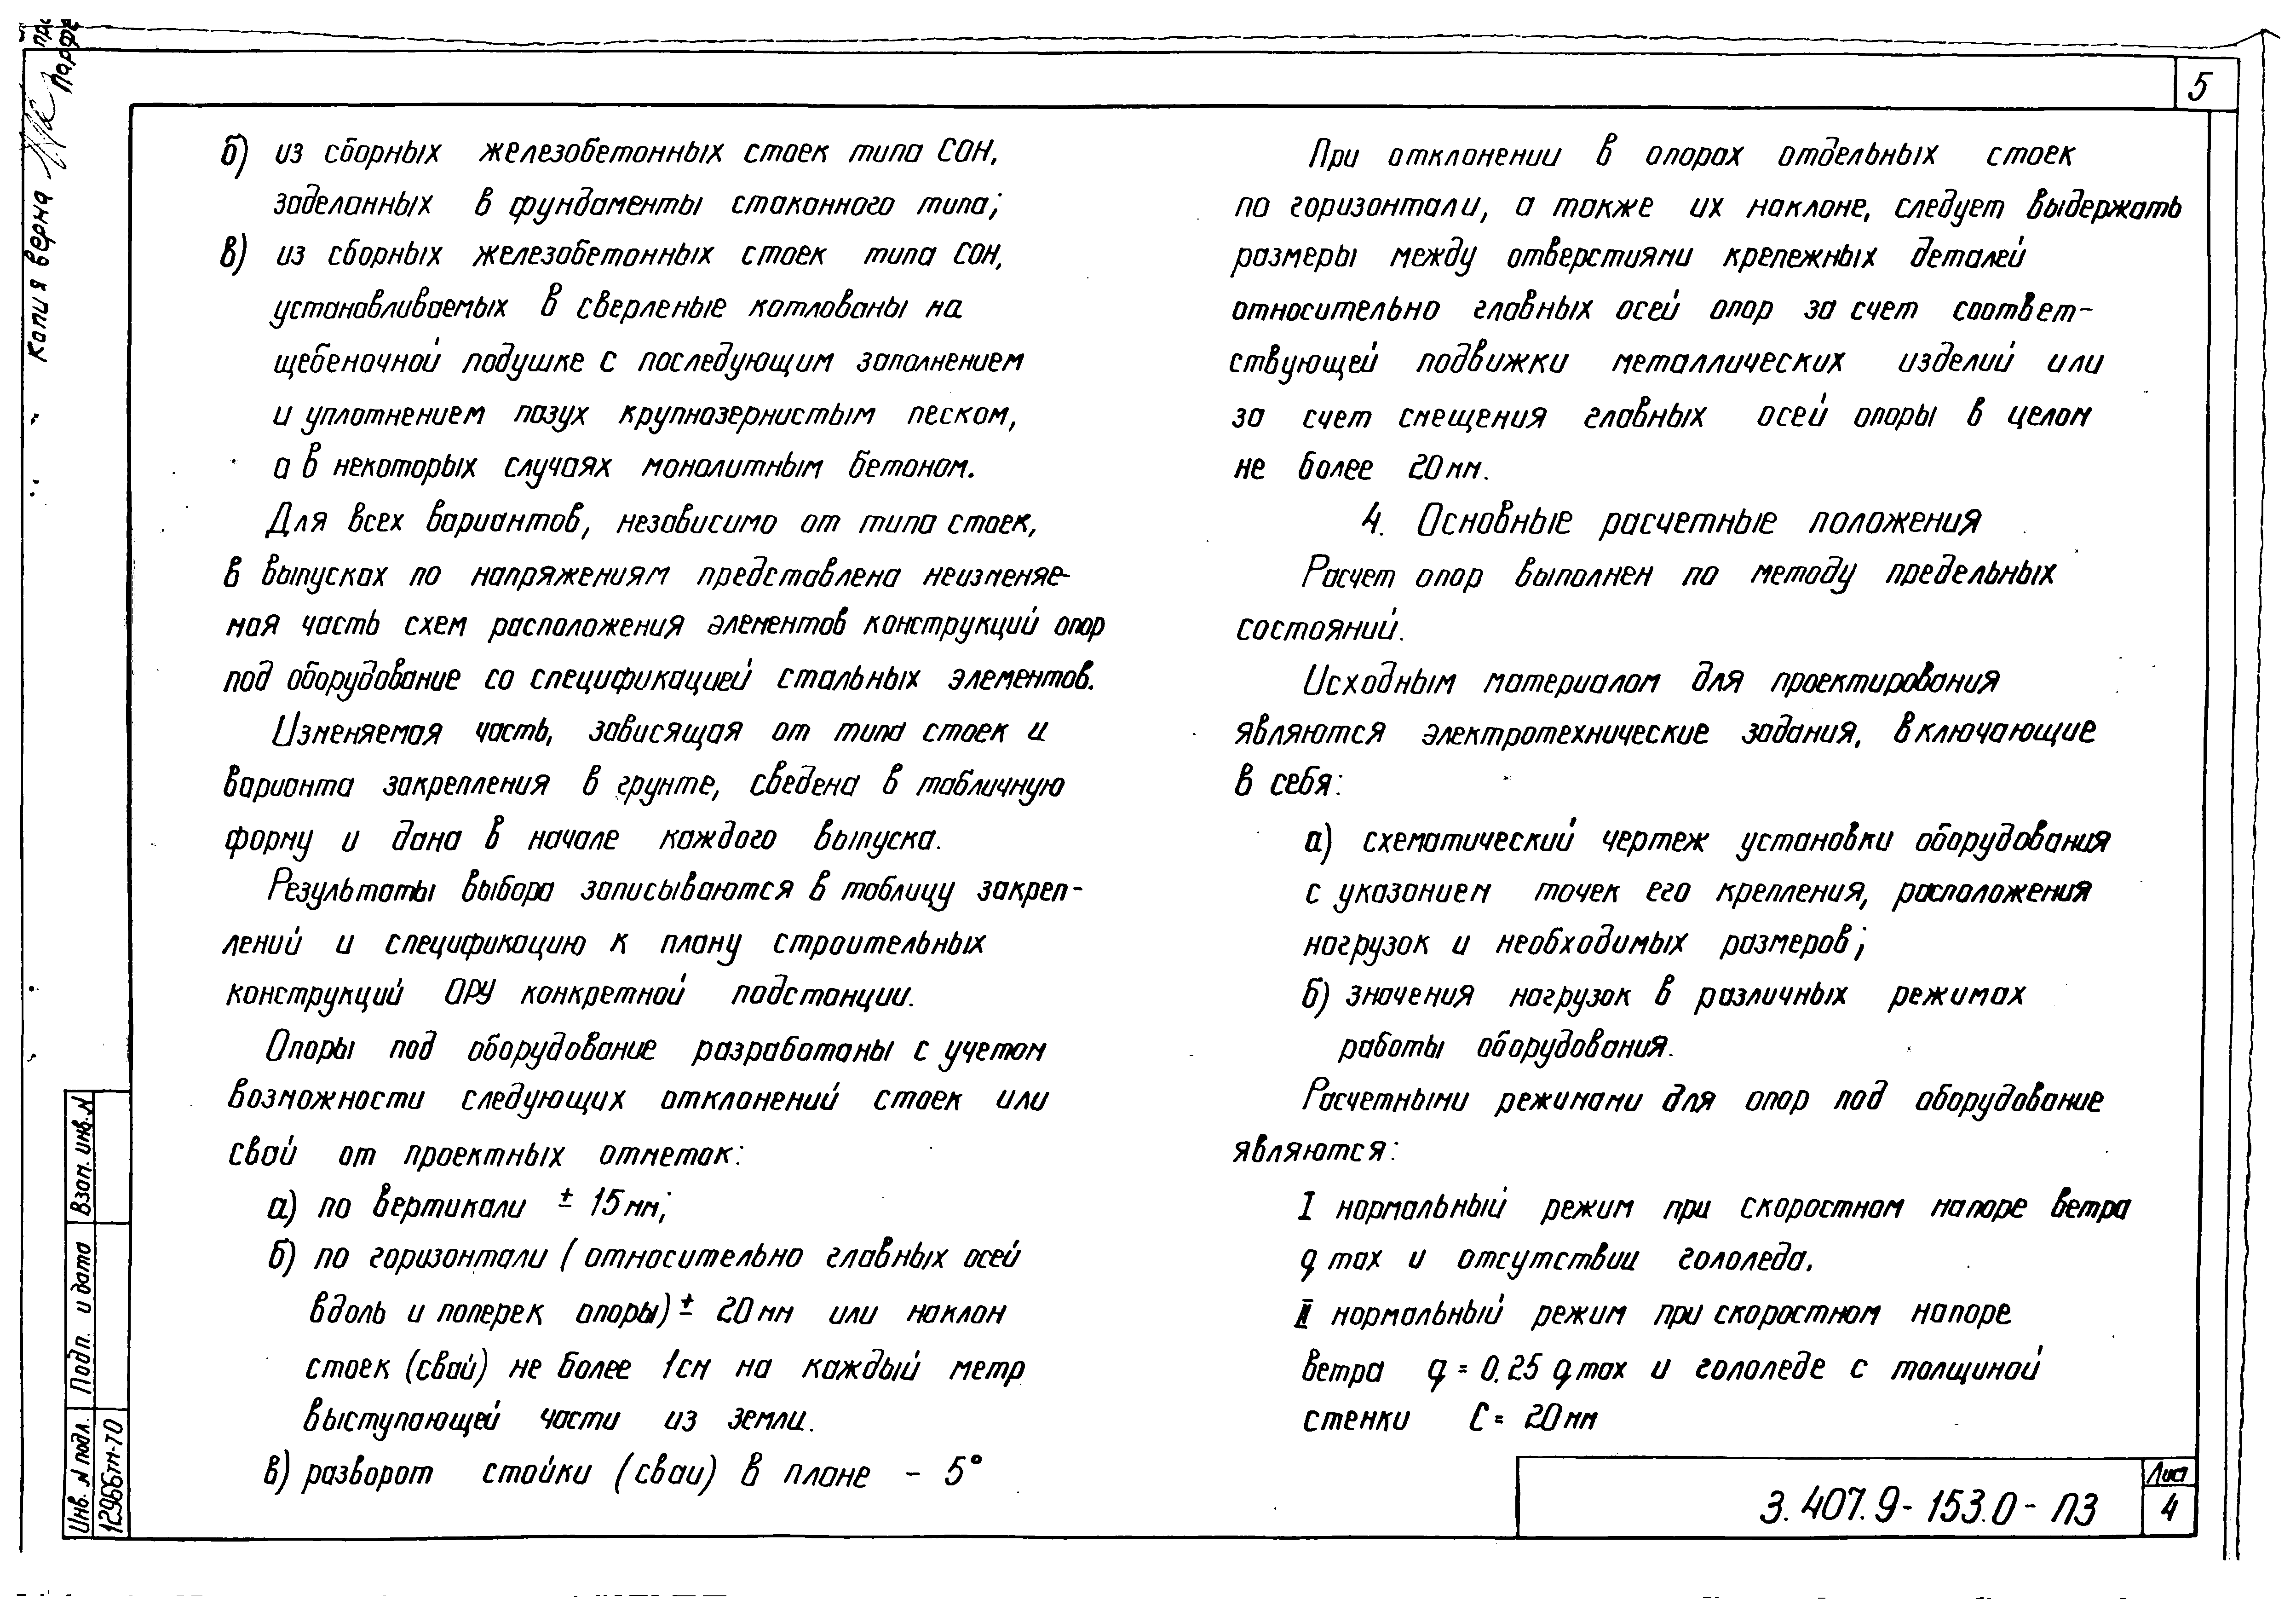 5
б) из сборных железобетонных стоек типа СОН,
заделанных в фундаменты стаканного типа;
в) из сборных железобетонных стоек типа СОН,
устанавливаемых в сверленые котлованы на
щебеночной подушке с последующим заполнением
и уплотнением пазух крупнозернистым песком,
а в некоторых случаях монолитным бетоном.
Для всех вариантов, независимо от типа стоек,
в выпусках по напряжениям представлена неизменяе-
мая часть схем расположения элементов конструкций опор
под оборудование со спецификацией стальных элементов.
Изменяемая часть, зависящая от типа стоек и
варианта закрепления в грунте, сведена в табличную
форму и дана в начале каждого выпуска.
Результаты выбора записываются в таблицу закреп-
лений и спецификацию к плану строительных
конструкций ОРУ конкретной подстанции.
Опоры под оборудование разработаны с учетом
возможности следующих отклонений стоек или
свай от проектных отметок:
а) по вертикали ± 15 мм;
б) по горизонтали (относительно главных осей
вдоль и поперек опоры) ± 20 мм или наклон
стоек (свай) не более 1см на каждый метр
выступающей части из земли.
в) разворот стойки (сваи) в плане – 5°
При отклонении в опорах отдельных стоек
по горизонтали, а также их наклоне, следует выдержать
размеры между отверстиями крепежных деталей
относительно главных осей опор за счет соответ-
ствующей подвижки металлических изделий или
за счет смещения главных осей опоры в целом
не более 20 мм.
4. Основные расчетные положения
Расчет опор выполнен по методу предельных
состояний.
Исходным материалом для проектирования
являются электротехнические задания, включающие
в себя:
а) схематический чертеж установки оборудования
с указанием точек его крепления, расположения
нагрузок и необходимых размеров;
б) значения нагрузок в различных режимах
работы оборудования.
Расчетными режимами для опор под оборудование
являются:
I нормальный режим при скоростном напоре ветра
q max и отсутствии гололеда.
II нормальный режим при скоростном напоре
ветра q = 0.25 q max и гололеде с толщиной
стенки С = 20 мм
3.407.9-153.0-ПЗ
Лист
4
Копия верна
Взам. инв. N
Подп. и дата
Инв. N подл.
12966тм-70